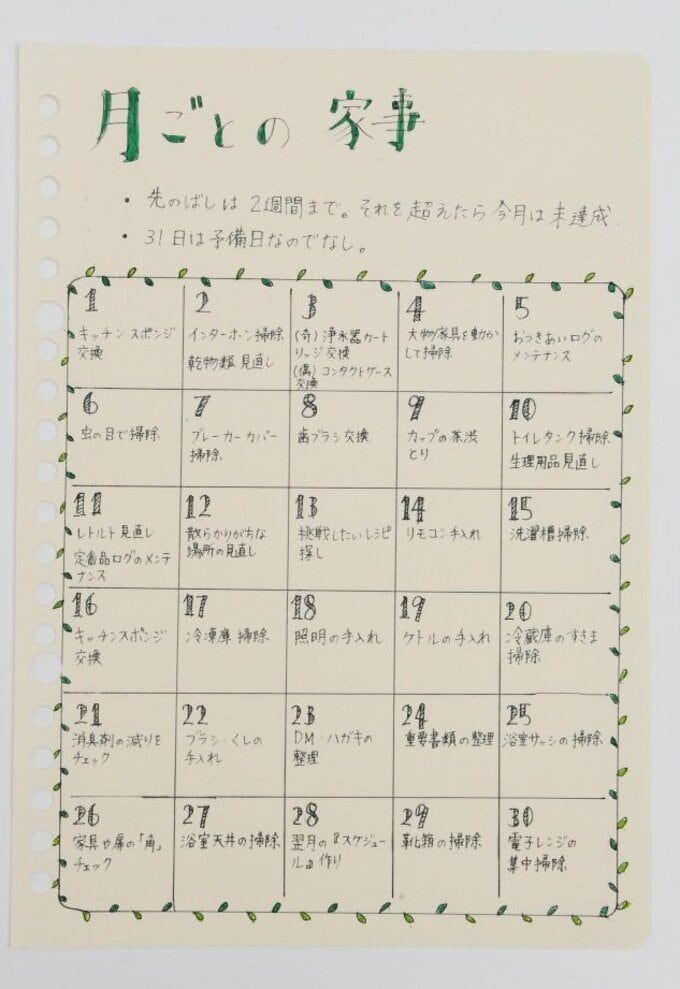 月ごとの 家事
・ 先のばしは 2週間まで。それを超えたら今月は未達成.
・ 31日は予備日なのでなし。
1
キッチンスポンジ
交換
2
インターホン掃除
乾物類 見直し
3
(奇) 浄水器カート
リッジ交換
(偶) コンタクトケース
交換
4
大物家具を動か
して掃除
5
おつきあいログの
メンテナンス
6
虫の目で掃除
7
ブレーカーカバー
掃除
8
歯ブラシ交換
9
カップの茶渋
とり
10
トイレタンク掃除
生理用品見直し
11
レトルト見直し
定番品ログのメンテ
ナンス
12
散らかりがちな
場所の見直し
13
挑戦したいレシピ
探し
14
リモコン手入れ
15
洗濯槽掃除
16
キッチンスポンジ
交換
17
冷凍庫掃除
18
照明の手入れ
19
ケトルの手入れ
20
冷蔵庫のすきま
掃除
21
消臭剤の減りを
チェック
22
ブラシ・くしの
手入れ
23
DM・ハガキの
整理
24
重要書類の整理
25
浴室サッシの掃除
26
家具や扉の「角」
チェック
27
浴室天井の掃除
28
翌月の『スケジュー
ル』作り
29
靴箱の掃除
30
電子レンジの
集中掃除